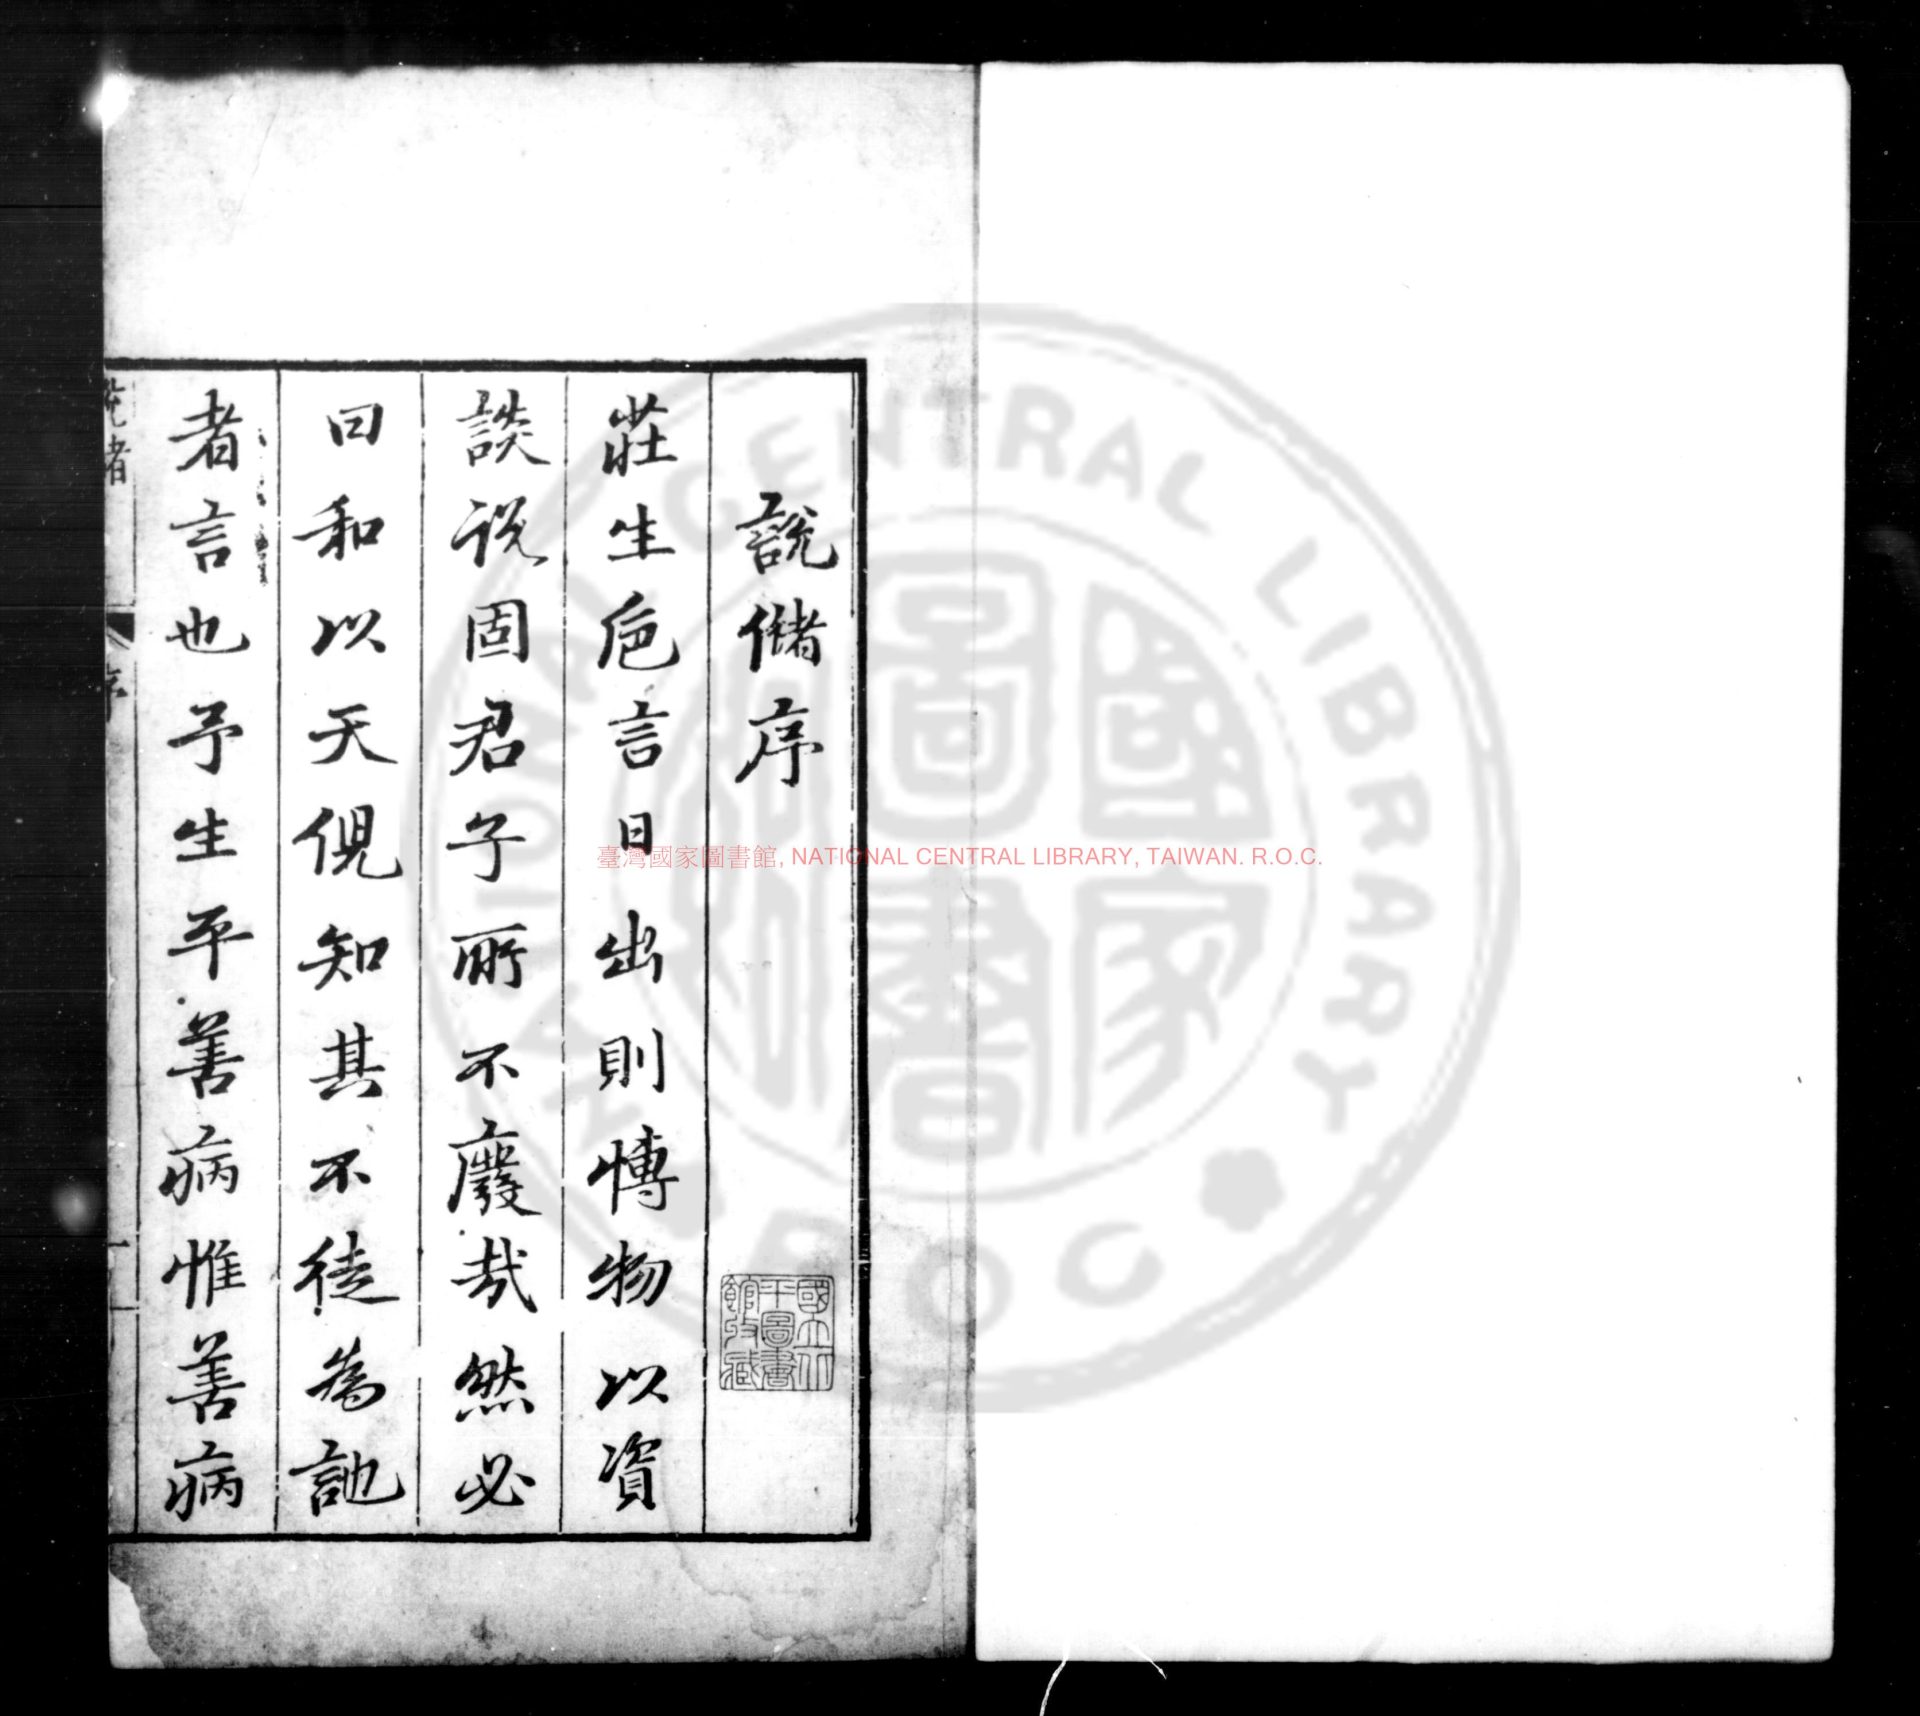 說儲序
莊生巵言日出則博物以資
談说固君子所不廢哉然必
曰和以天倪知其不徒為訑
者言也予生平善病惟善病
序
國立北
平圖書
館收藏
臺灣國家圖書館, NATIONAL CENTRAL LIBRARY, TAIWAN. R.O.C.
NATIONAL CENTRAL LIBRARY
R O C
國家
圖書